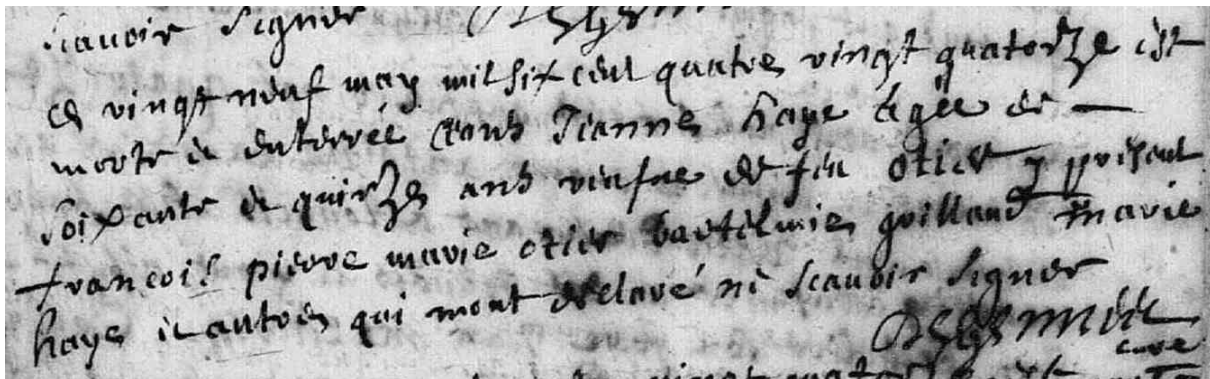 scavoir signer
ce vingt neuf may mil six cent quatre vingt quatorze est
morte et enterrée ceans Jeanne haye agee de —
soixante et quinze ans veufue de feu otier y present
francois pierre marie otier bartelmie guillaud marie
haye et autres qui mont declaré ne scavoir signer
curé
vingt quatorze est